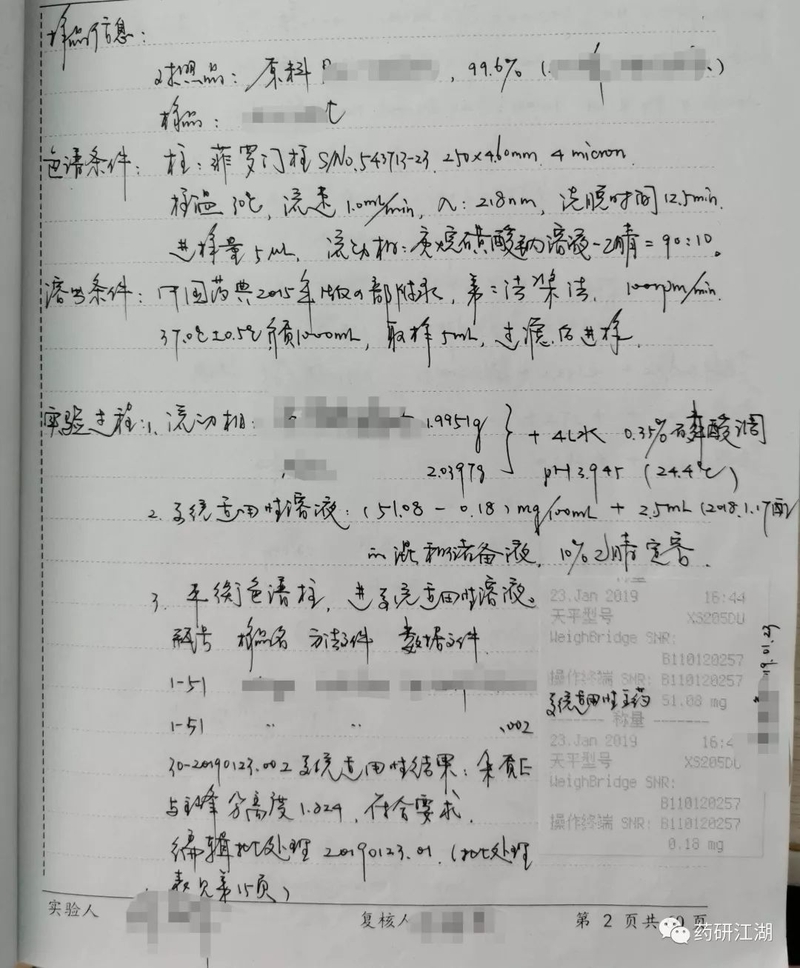 样品信息：
对照品：原料 , 99.6% (
样品：
色谱条件：柱：菲罗门柱 S/No.543713-23. 250×4.60mm. 4 micron.
柱温 30℃, 流速 1.0ml/min, λ: 218nm, 洗脱时间 12.5min.
进样量 5μL, 流动相: 烷磺酸钠溶液-乙腈=90:10。
溶出条件：中国药典2015年版四部附录, 第二法桨法, 100rpm/min.
37.0℃±0.5℃ 1000mL, 取样5mL, 过滤后进样.
实验过程: 1、流动相: 1.9951g } + 4L水 0.35%磷酸调
2.0397g pH 3.945 (24.4℃)
2. 系统适用性溶液: (51.08 - 0.18) mg/100mL + 2.5mL (2018.1.17配)
的混和储备液, 10%乙腈定容.
3. 平衡色谱柱, 进系统适用性溶液。
瓶号 样品名 方法文件 数据文件
1-51
1-51 〃 〃 .002
30-20190123.002系统适用性结果: 杂质E
与主峰分离度1.824, 符合要求.
编辑批处理 20190123.01. (批处理
表见第15页)
23.Jan 2019 16:44
天平型号 XS205DU
WeighBridge SNR:
B110120257
操作终端 SNR: B110120257
系统适用性主药 51.08 mg
称量
23.Jan 2019 16:4
天平型号 XS205DU
WeighBridge SNR:
B110120257
操作终端 SNR: B110120257
0.18 mg
实验人 复核人 第 2 页共 0 页
药研江湖